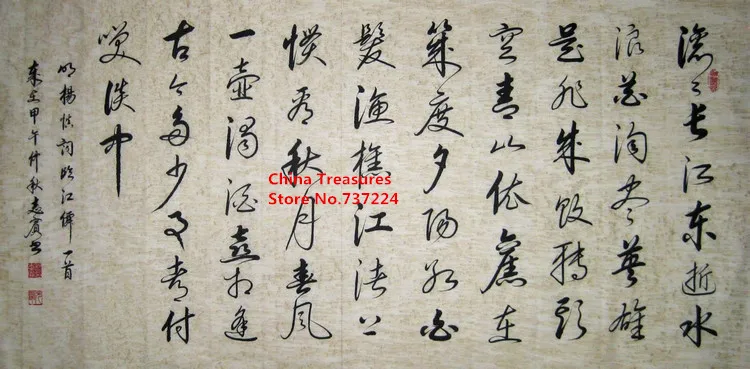 滚滚长江东逝水
浪花淘尽英雄
是非成败转头
空青山依旧在
几度夕阳红白
髮渔樵江渚上
惯看秋月春风
一壶浊酒喜相逢
古今多少事都付
笑谈中
明杨慎词临江仙一首
岁在甲午仲秋书
China Treasures
Store No.737224